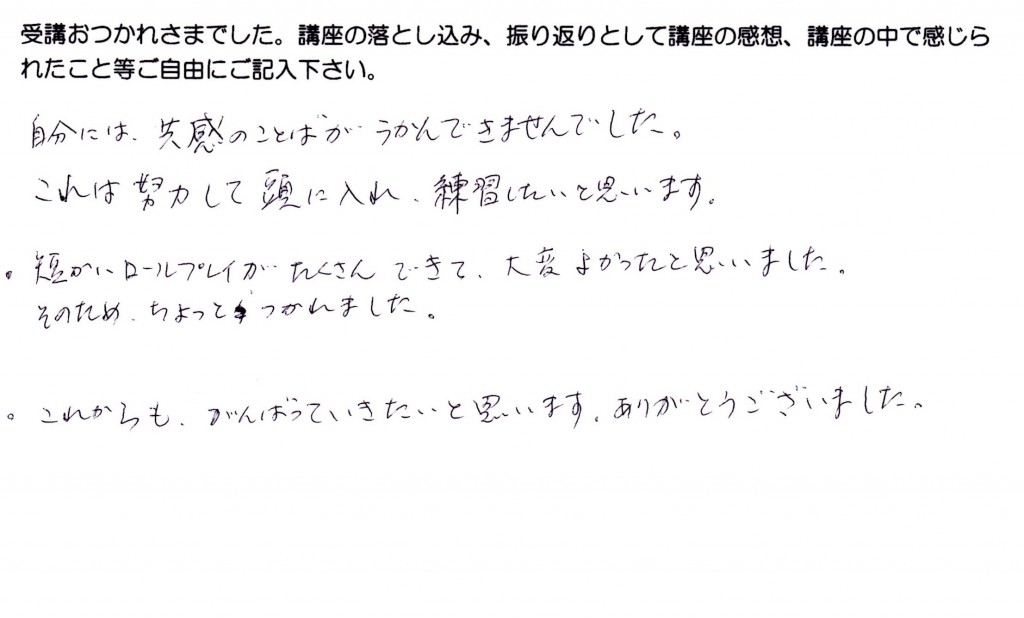 受講おつかれさまでした。講座の落とし込み、振り返りとして講座の感想、講座の中で感じら
れたこと等ご自由にご記入下さい。
自分には、共感のことばが うかんできませんでした。
これは努力して頭に入れ、練習したいと思います。
。短かいロールプレイがたくさんできて、大変よかったと思いました。
そのため、ちょっとつかれました。
。これからも、がんばっていきたいと思います。ありがとうございました。